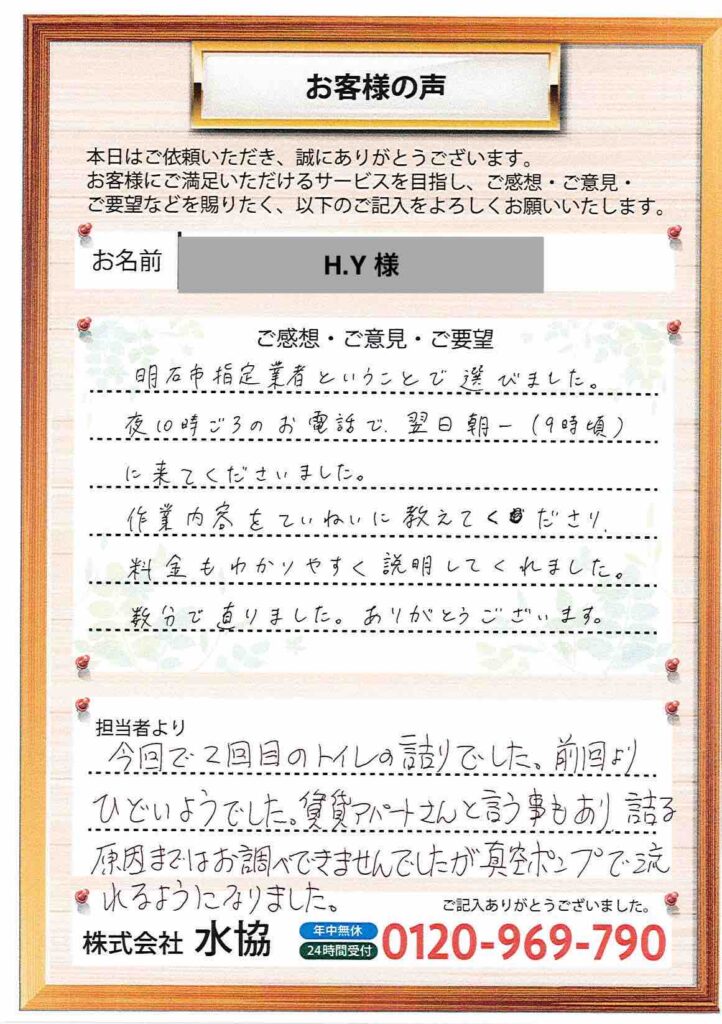 お客様の声
本日はご依頼いただき、誠にありがとうございます。
お客様にご満足いただけるサービスを目指し、ご感想・ご意見・
ご要望などを賜りたく、以下のご記入をよろしくお願いいたします。
お名前 H.Y 様
ご感想・ご意見・ご要望
明石市指定業者ということで選びました。
夜10時ごろのお電話で、翌日朝一(9時頃)
に来てくださいました。
作業内容をていねいに教えてくださり、
料金もわかりやすく説明してくれました。
数分で直りました。ありがとうございます。
担当者より
今回で2回目のトイレの詰りでした。前回より
ひどいようでした。賃貸アパートさんと言う事もあり、詰る
原因まではお調べできませんでしたが真空ポンプで流
れるようになりました。
ご記入ありがとうございました。
株式会社 水協 年中無休 24時間受付 0120-969-790